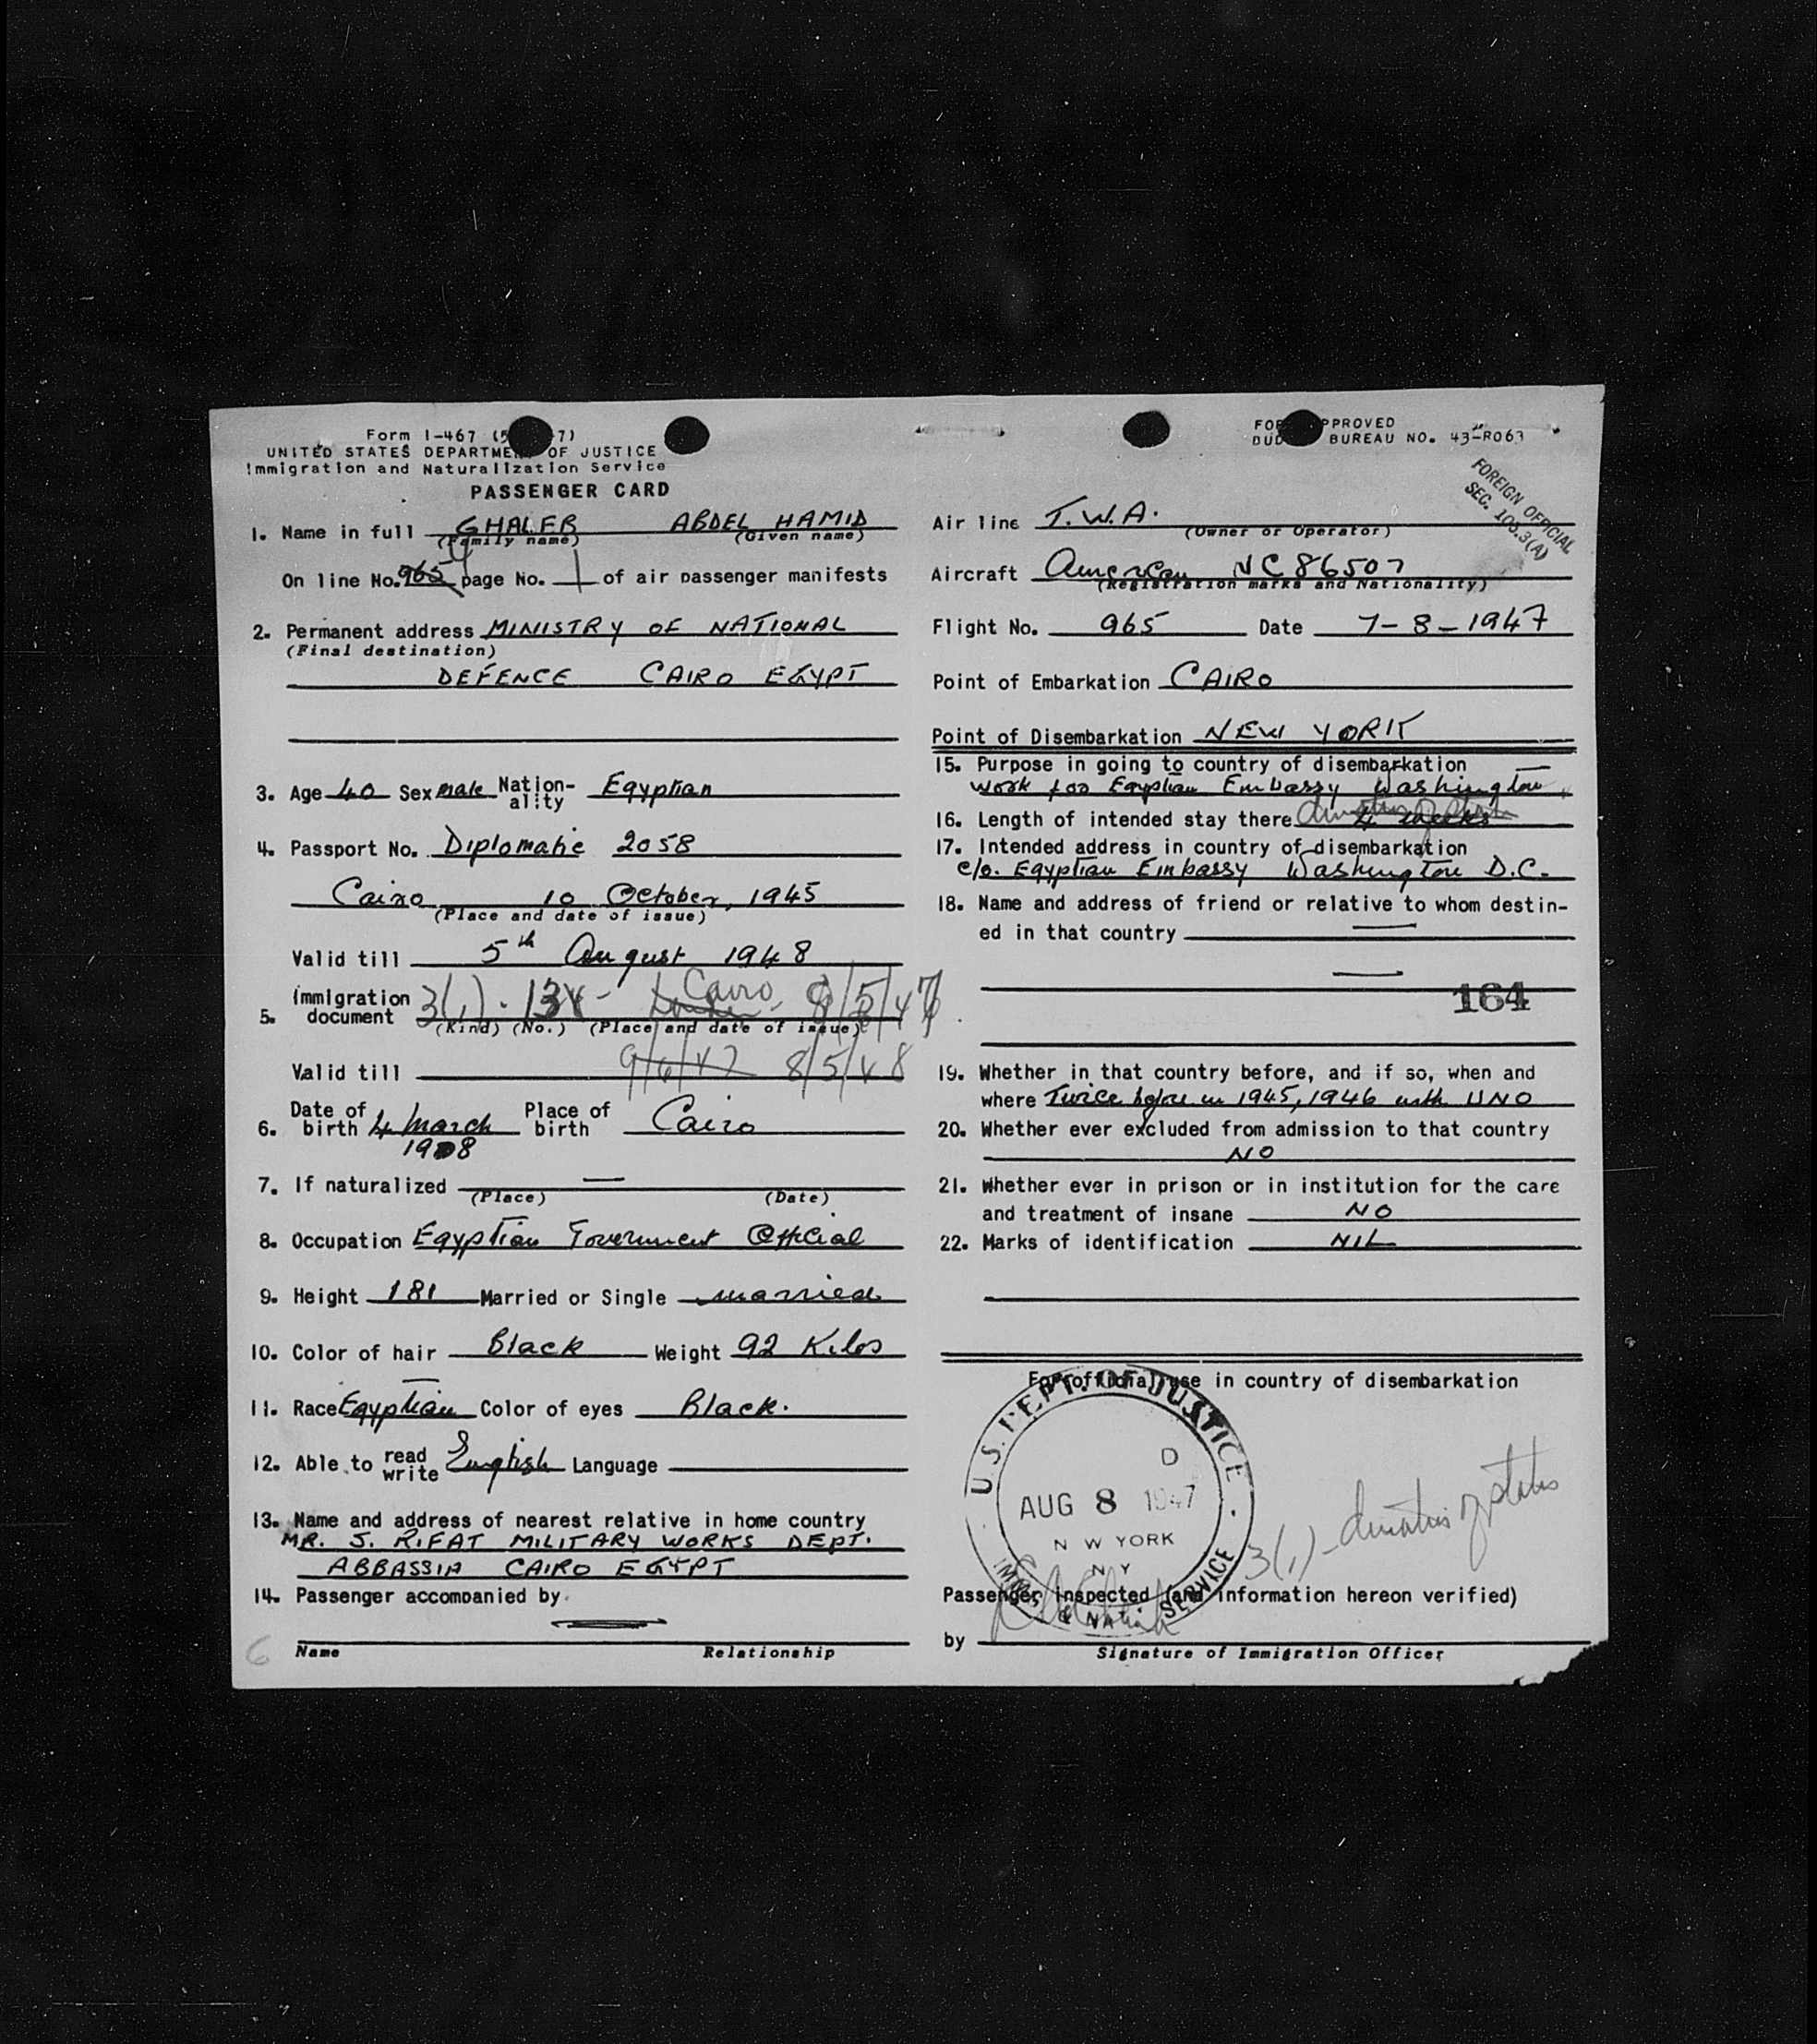 Form I-467 (5 7)
UNITED STATES DEPARTMENT OF JUSTICE
Immigration and Naturalization Service
PASSENGER CARD
1. Name in full GHALEB ABDEL HAMID
(Family name) (Given name)
On line No. 965 4 page No. 1 of air passenger manifests
2. Permanent address MINISTRY OF NATIONAL
(Final destination)
DEFENCE CAIRO EGYPT
3. Age 40 Sex male Nation-ality Egyptian
4. Passport No. Diplomatic 2058
Cairo 10 October, 1945
(Place and date of issue)
Valid till 5th August 1948
5. Immigration document 3(1) - Cairo
(Kind) (No.) (Place and date of issue)
Valid till 9/6/47 8/5/48
6. Date of birth 4 March 1908 Place of birth Cairo
7. If naturalized —
(Place) (Date)
8. Occupation Egyptian Government Official
9. Height 181 Married or Single married
10. Color of hair Black Weight 92 Kilos
11. Race Egyptian Color of eyes Black.
12. Able to read write English Language
13. Name and address of nearest relative in home country
MR. S. RIFAT MILITARY WORKS DEPT.
ABBASSIA CAIRO EGYPT
14. Passenger accompanied by
6 Name Relationship
FORM APPROVED
BUDGET BUREAU NO. 43-R063
FOREIGN OFFICIAL
SEC. 103.3(A)
Air line T.W.A.
(Owner or Operator)
Aircraft American NC 86507
(Registration marks and Nationality)
Flight No. 965 Date 7-8-1947
Point of Embarkation CAIRO
Point of Disembarkation NEW YORK
15. Purpose in going to country of disembarkation
work for Egyptian Embassy Washington
16. Length of intended stay there 4 weeks duration of status
17. Intended address in country of disembarkation
c/o. Egyptian Embassy Washington D.C.
18. Name and address of friend or relative to whom destin-
ed in that country —
—
164
19. Whether in that country before, and if so, when and
where Twice before in 1945, 1946 with UNO
20. Whether ever excluded from admission to that country
NO
21. Whether ever in prison or in institution for the care
and treatment of insane NO
22. Marks of identification NIL
For official use in country of disembarkation
U.S. DEPT. OF JUSTICE
D
AUG 8 1947
N W YORK
N Y
IMM. & NAT. SERVICE
3(1) - duration of status
Passenger inspected (and information hereon verified)
by
Signature of Immigration Officer